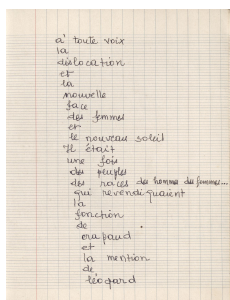 à toute voix
la
dislocation
et
la
nouvelle
face
des femmes
et
le nouveau soleil
Il était
une fois
des peuples
des races des hommes des femmes...
qui revendiquaient
la
fonction
de
crapaud
et
la mention
de
léopard